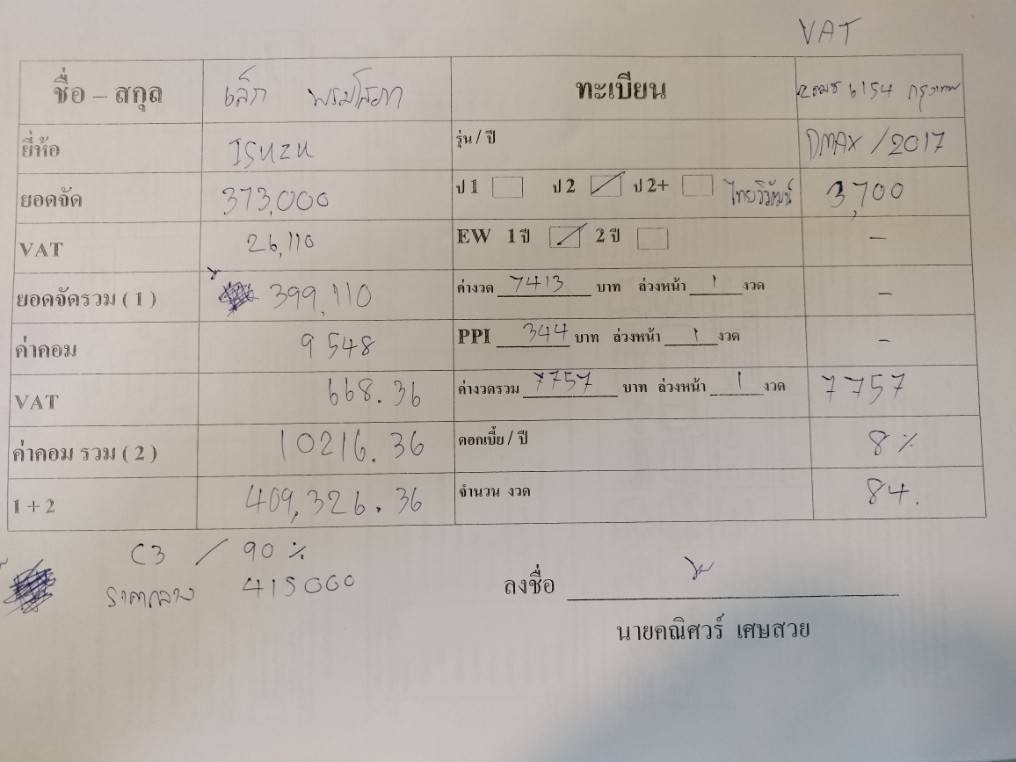 VAT
ชื่อ – สกุล เล็ก พรมโสภา ทะเบียน 6154 กรุงเทพ
ยี่ห้อ ISUZU รุ่น / ปี DMAX / 2017
ยอดจัด 373,000 ป 1 ป 2 ป 2+ ไทยวิวัฒน์ 3,700
VAT 26,110 EW 1 ปี 2 ปี –
ยอดจัดรวม ( 1 ) 399,110 ค่างวด 7413 บาท ล่วงหน้า 1 งวด –
ค่าคอม 9 548 PPI 344 บาท ล่วงหน้า 1 งวด –
VAT 668.36 ค่างวดรวม 7757 บาท ล่วงหน้า 1 งวด 7757
ค่าคอม รวม ( 2 ) 10216.36 ดอกเบี้ย / ปี 8 %
1 + 2 409,326.36 จำนวน งวด 84.
C3 / 90 %
ราคากลาง 415000
ลงชื่อ
นายคณิศวร์ เศษสวย